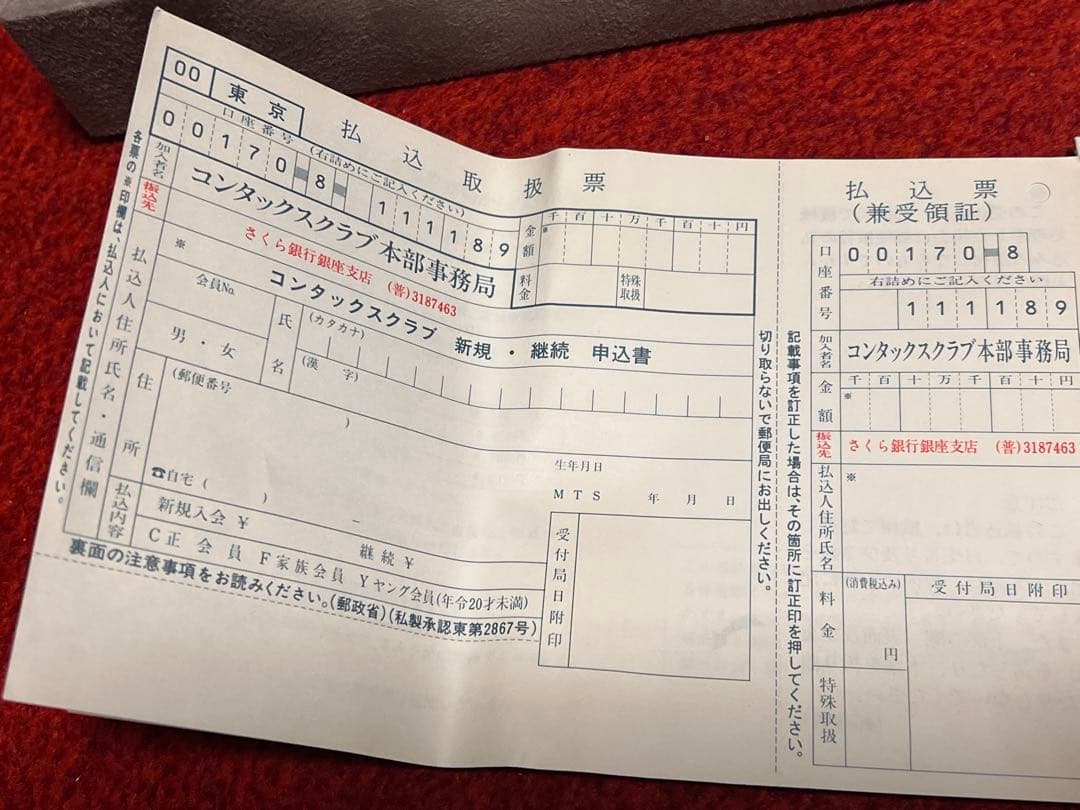 00 東京
払込取扱票
口座番号 (右詰めにご記入ください)
00170-8- 111189
加入者名
コンタックスクラブ本部事務局
金額
千百十万千百十円
※
料金
特殊取扱
振込先
さくら銀行銀座支店 (普)3187463
コンタックスクラブ 新規・継続 申込書
※
会員No.
氏名
(カタカナ)
(漢字)
男・女
払込人住所氏名・通信欄
住所
(郵便番号 )
☎自宅 ( ) −
生年月日
M T S 年 月 日
払込内容
新規入会 ¥ 継続 ¥
C 正会員 F 家族会員 Y ヤング会員(年令20才未満)
受付局日附印
裏面の注意事項をお読みください。(郵政省)(私製承認東第2867号)
各票の※印欄は、払込人において記載してください。
切り取らないで郵便局にお出しください。
記載事項を訂正した場合は、その箇所に訂正印を押してください。
払込票
(兼受領証)
口座番号
00170-8
右詰めにご記入ください
111189
加入者名
コンタックスクラブ本部事務局
金額
千百十万千百十円
※
振込先
さくら銀行銀座支店 (普)3187463
払込人住所氏名
※
料金
(消費税込み)
円
受付局日附印
特殊取扱